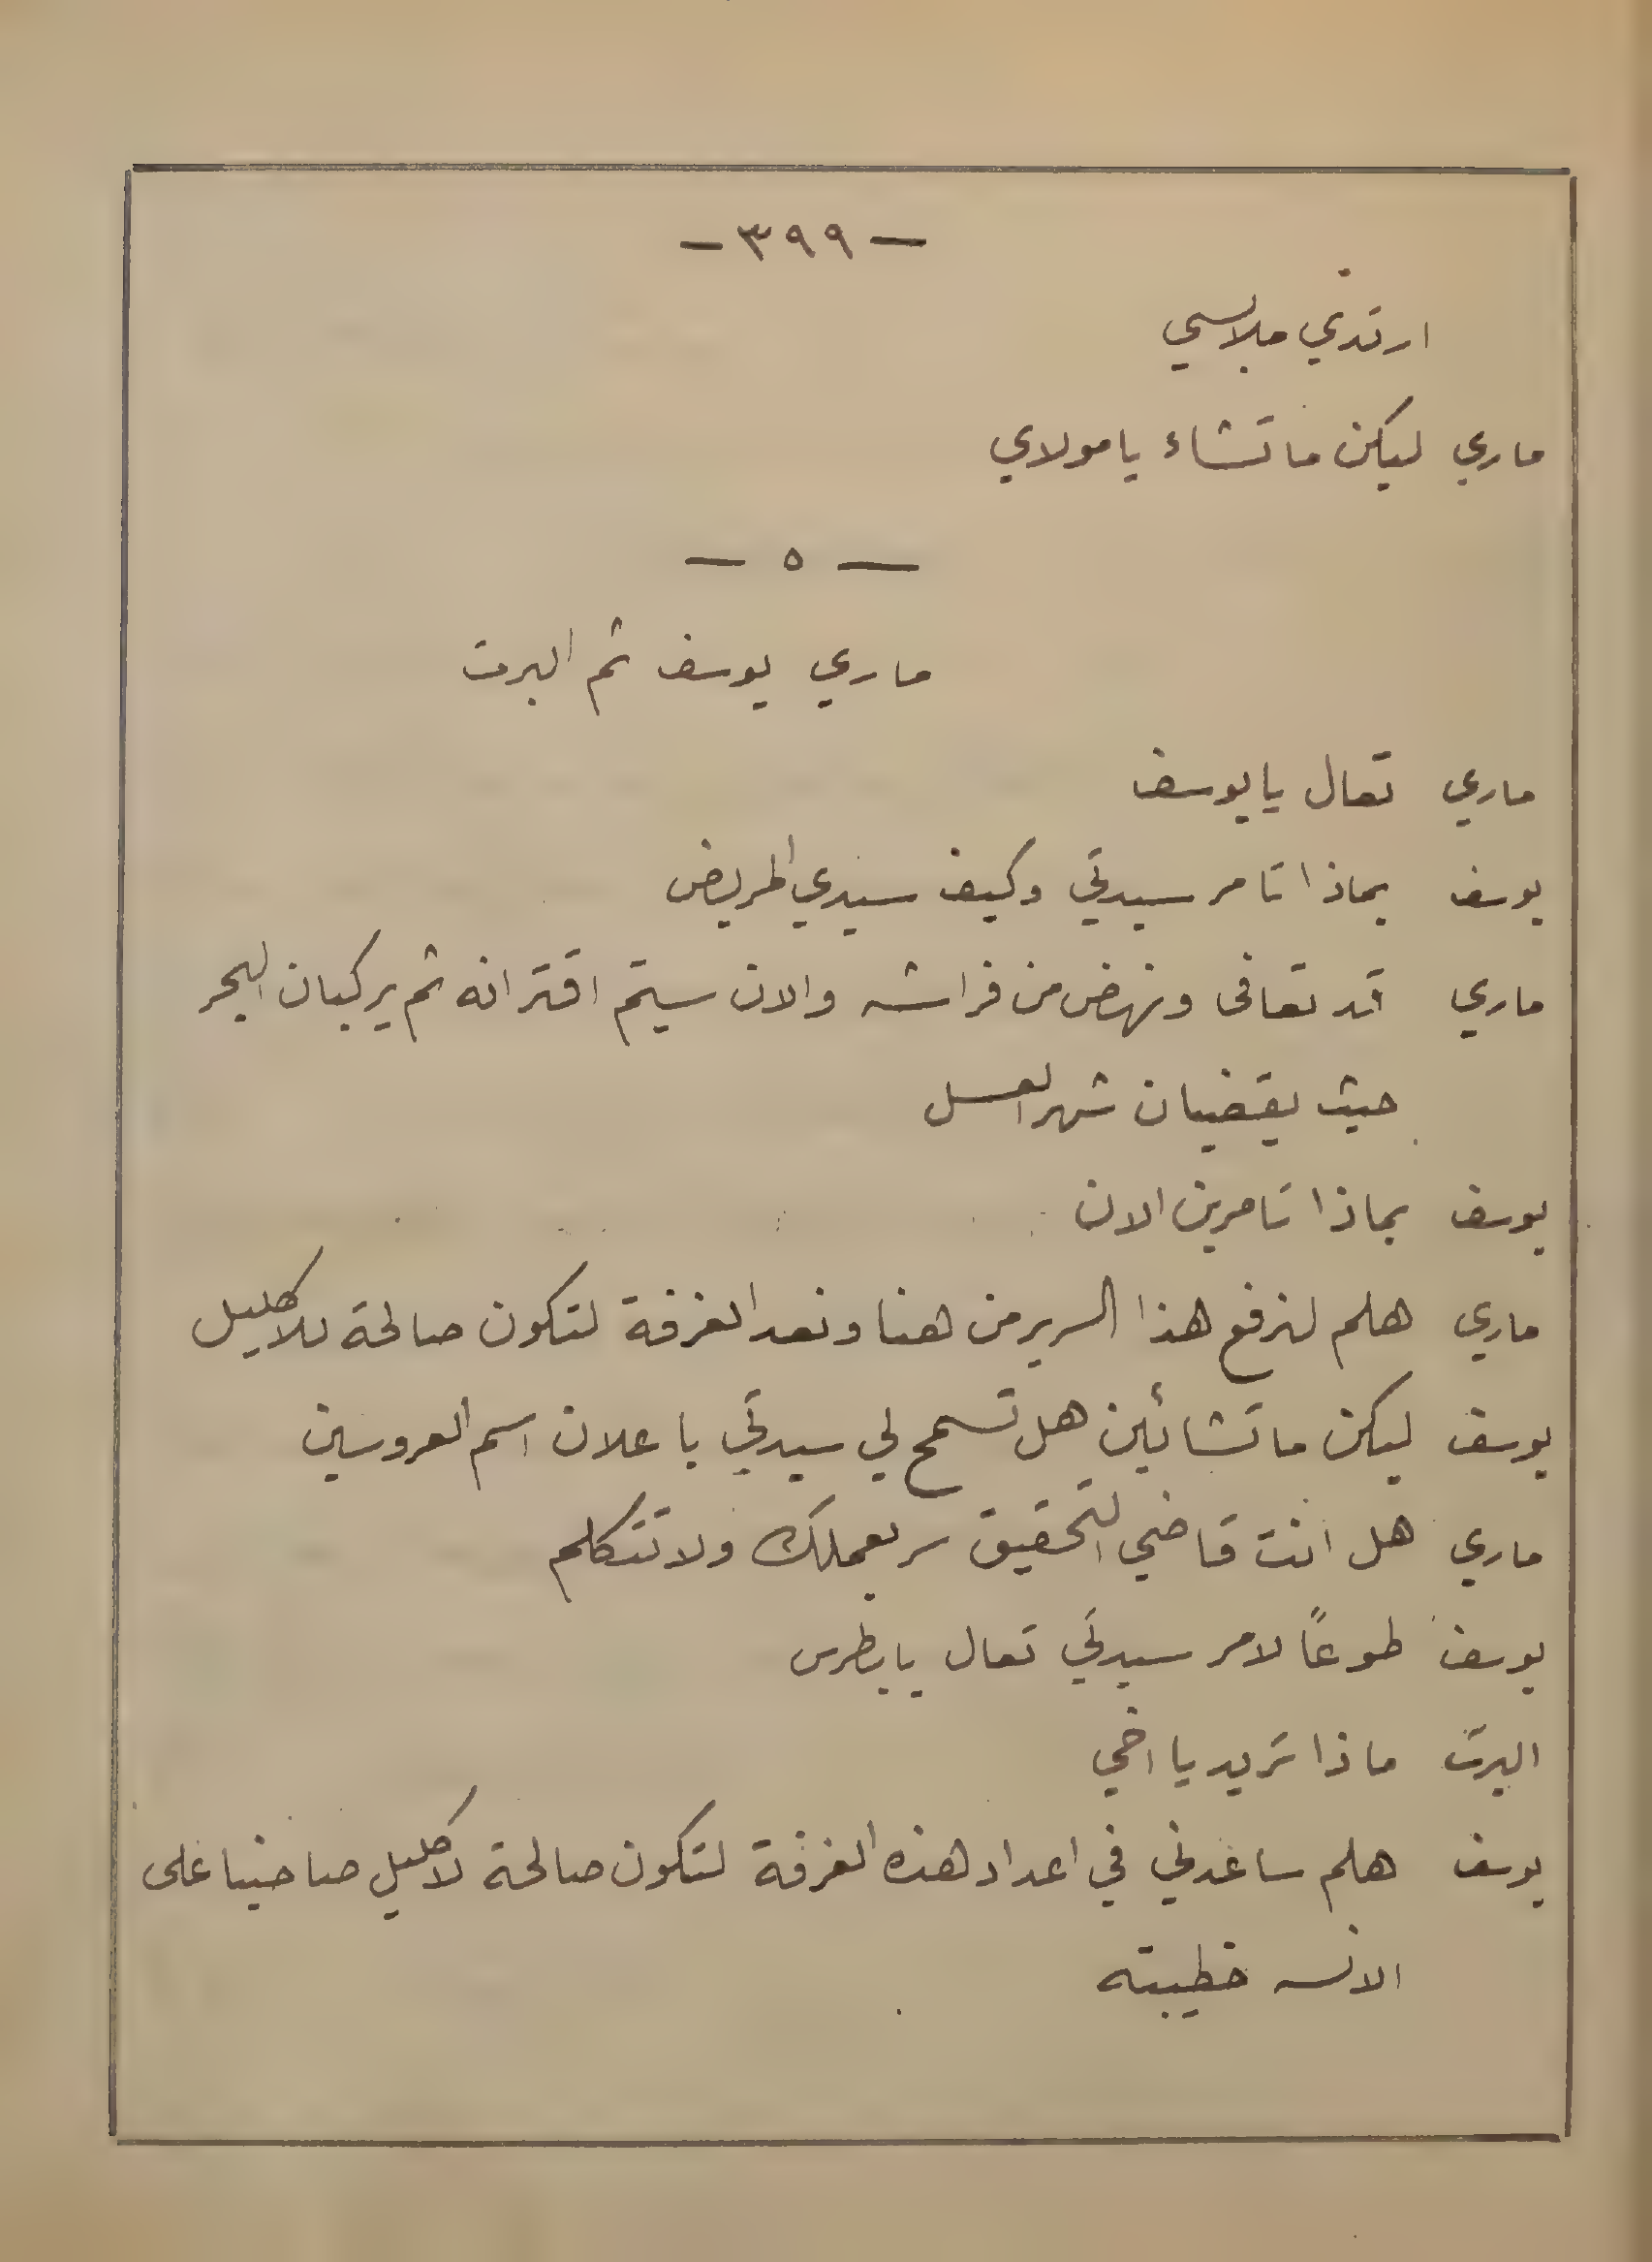 - ٣٩٩ -
ارتدي ملابسي
ماري ليكن ما تشاء يا مولاي
- ٥ -
ماري يوسف ثم البرت
ماري تعال يا يوسف
يوسف بماذا تامر سيدتي وكيف سيدي المريض
ماري قد تعافى ونهض من فراشه والان سيتم اقترانه ثم يركبان البحر
حيث يقضيان شهر العسل
يوسف بماذا تامرين الان
ماري هلم لنرفع هذا السرير من هنا ونعد الغرفة لتكون صالحة للاكليل
يوسف ليكن ما تشائين هل تسمح لي سيدتي باعلان اسم العروسين
ماري هل انت قاضي التحقيق سر بعملك ولا تتكلم
يوسف طوعاً لامر سيدتي تعال يا بطرس
البرت ماذا تريد يا اخي
يوسف هلم ساعدني في اعداد هذه الغرفة لتكون صالحة لاكليل صاحبنا على
الانسه خطيبته